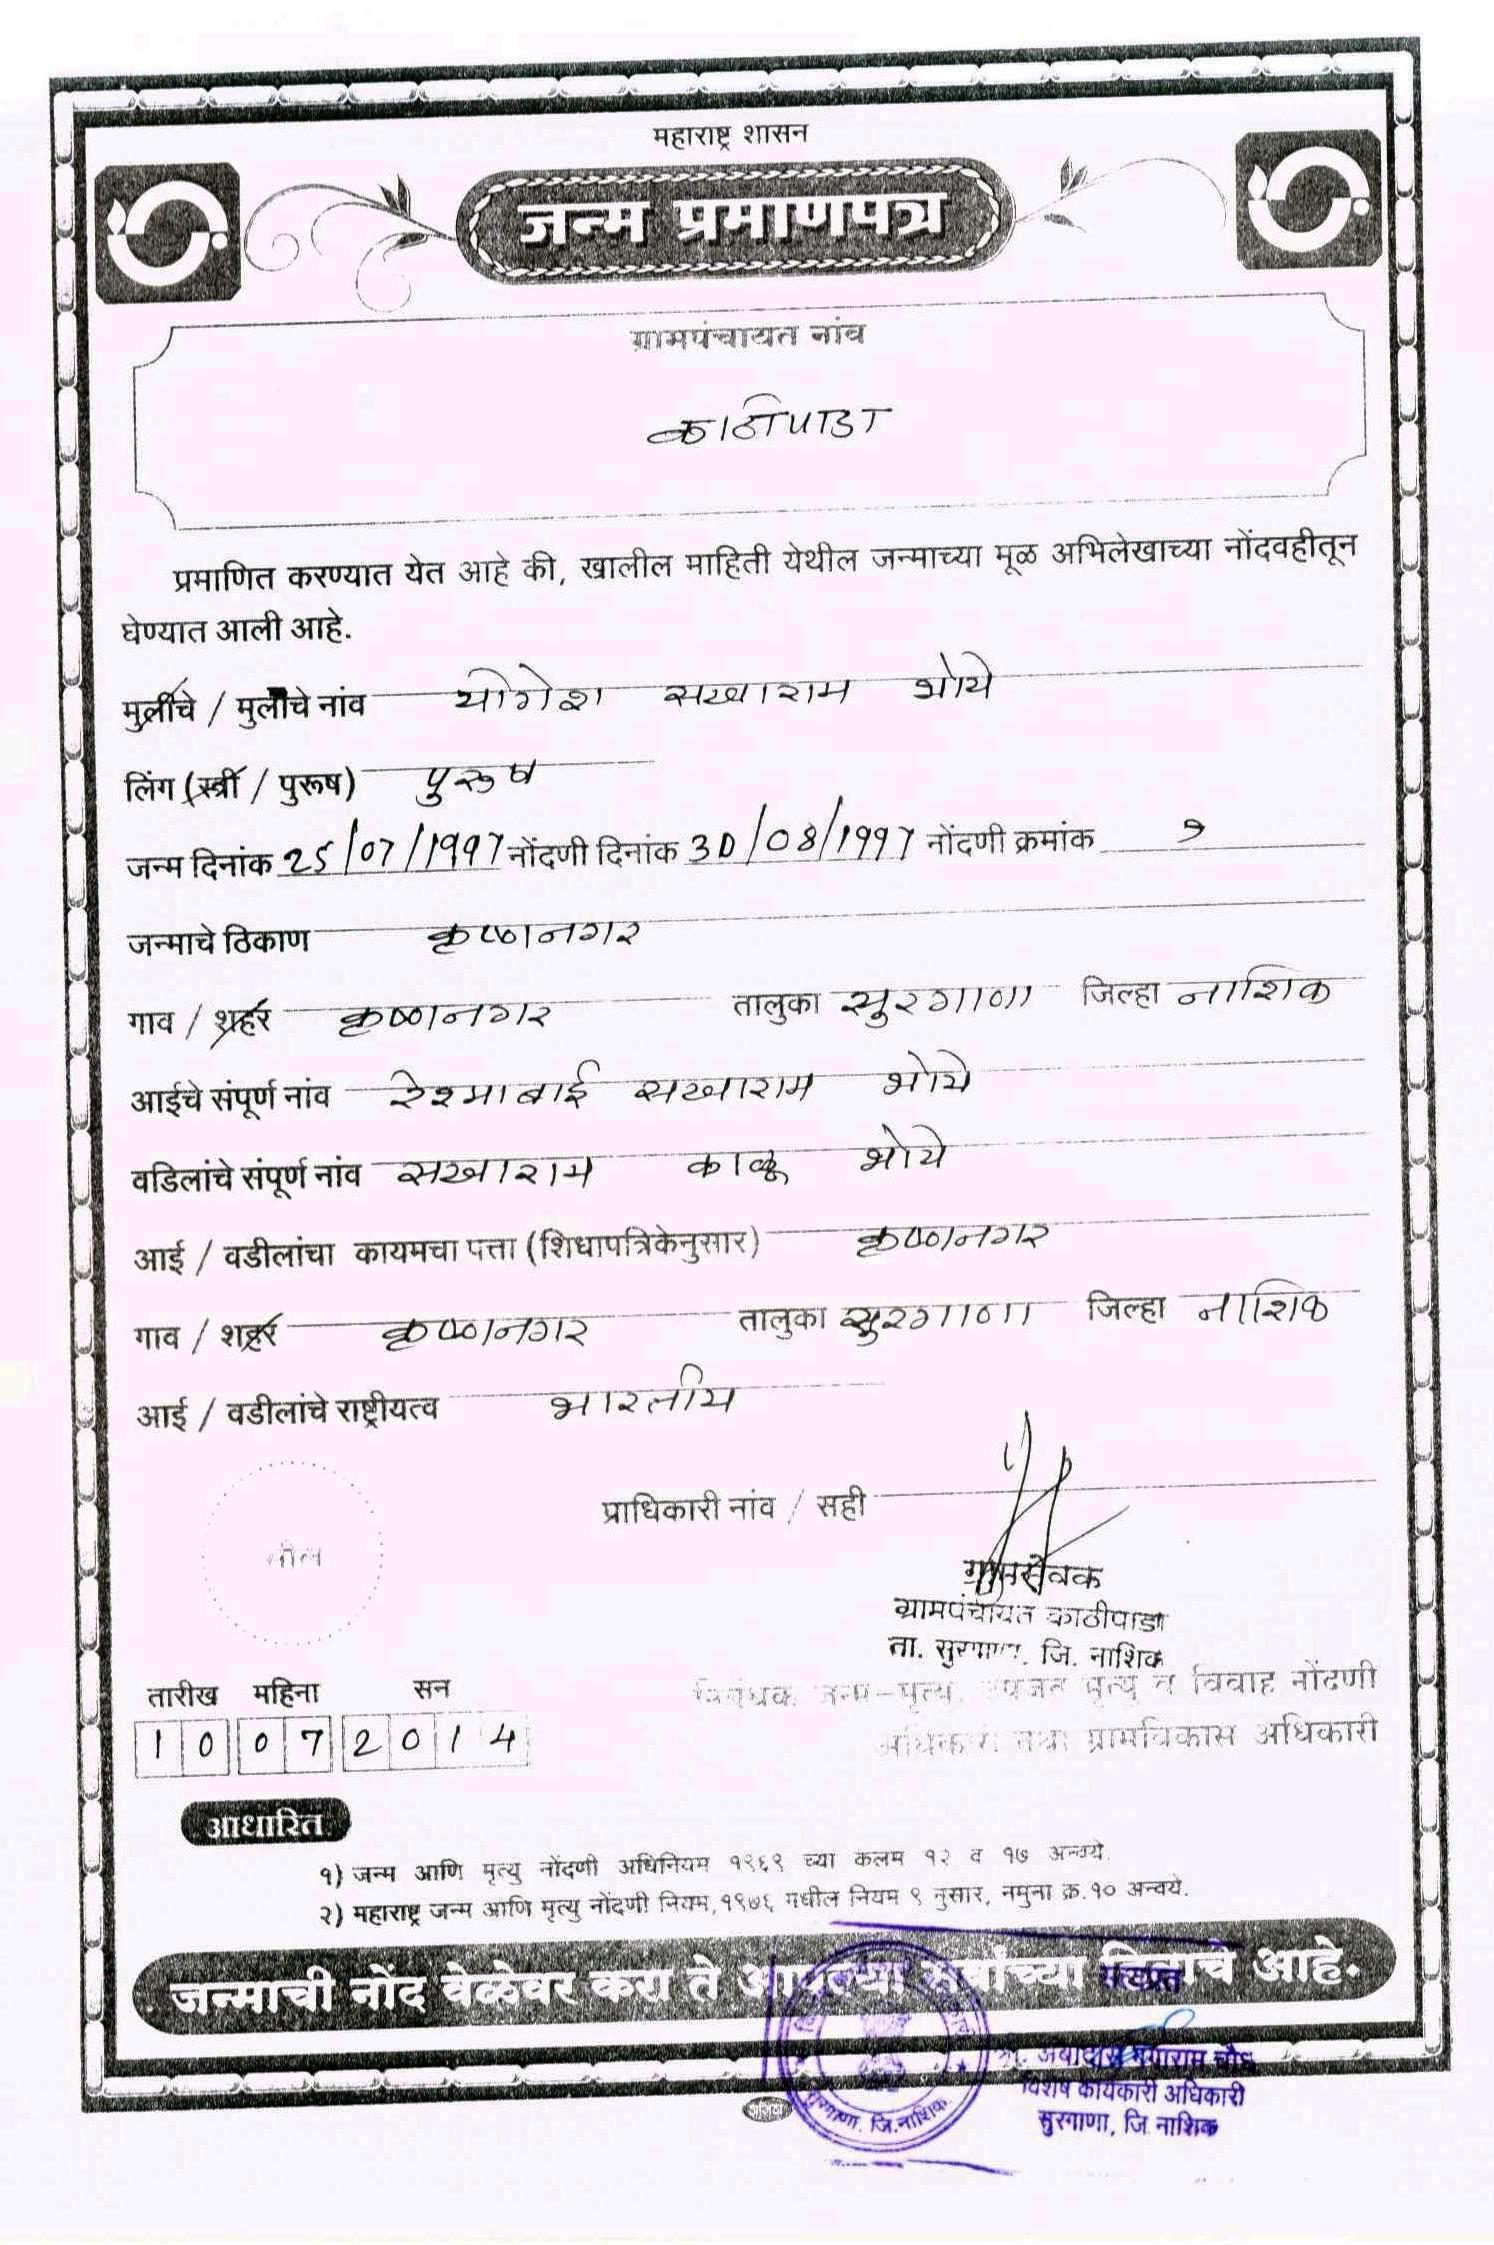 महाराष्ट्र शासन
जन्म प्रमाणपत्र
ग्रामपंचायत नांव
काठीपाडा
प्रमाणित करण्यात येत आहे की, खालील माहिती येथील जन्माच्या मूळ अभिलेखाच्या नोंदवहीतून
घेण्यात आली आहे.
मुलीचे / मुलाचे नांव योगेश सखाराम भोये
लिंग (स्त्री / पुरूष) पुरुष
जन्म दिनांक 25/07/1997 नोंदणी दिनांक 30/08/1997 नोंदणी क्रमांक
जन्माचे ठिकाण कृष्णनगर
गाव / शहर कृष्णनगर तालुका सुरगाणा जिल्हा नाशिक
आईचे संपूर्ण नांव रेश्माबाई सखाराम भोये
वडिलांचे संपूर्ण नांव सखाराम काळू भोये
आई / वडीलांचा कायमचा पत्ता (शिधापत्रिकेनुसार) कृष्णनगर
गाव / शहर कृष्णनगर तालुका सुरगाणा जिल्हा नाशिक
आई / वडीलांचे राष्ट्रीयत्व भारतीय
प्राधिकारी नांव / सही
सील
ग्रामसेवक
ग्रामपंचायत काठीपाडा
ता. सुरगाणा, जि. नाशिक
तारीख महिना सन
निबंधक जन्म-मृत्यु, उपजत मृत्यु व विवाह नोंदणी
10 07 2014
अधिकारी तथा ग्रामविकास अधिकारी
आधारित
१) जन्म आणि मृत्यु नोंदणी अधिनियम १९६९ च्या कलम १२ व १७ अन्वये.
२) महाराष्ट्र जन्म आणि मृत्यु नोंदणी नियम, १९७६ मधील नियम ९ नुसार, नमुना क्र.१० अन्वये.
जन्माची नोंद वेळेवर करा ते आपल्या सर्वांच्या हिताचे आहे.
सत्यप्रत
विशेष कार्यकारी अधिकारी
सुरगाणा, जि नाशिक
सुरगाणा. जि.नाशिक